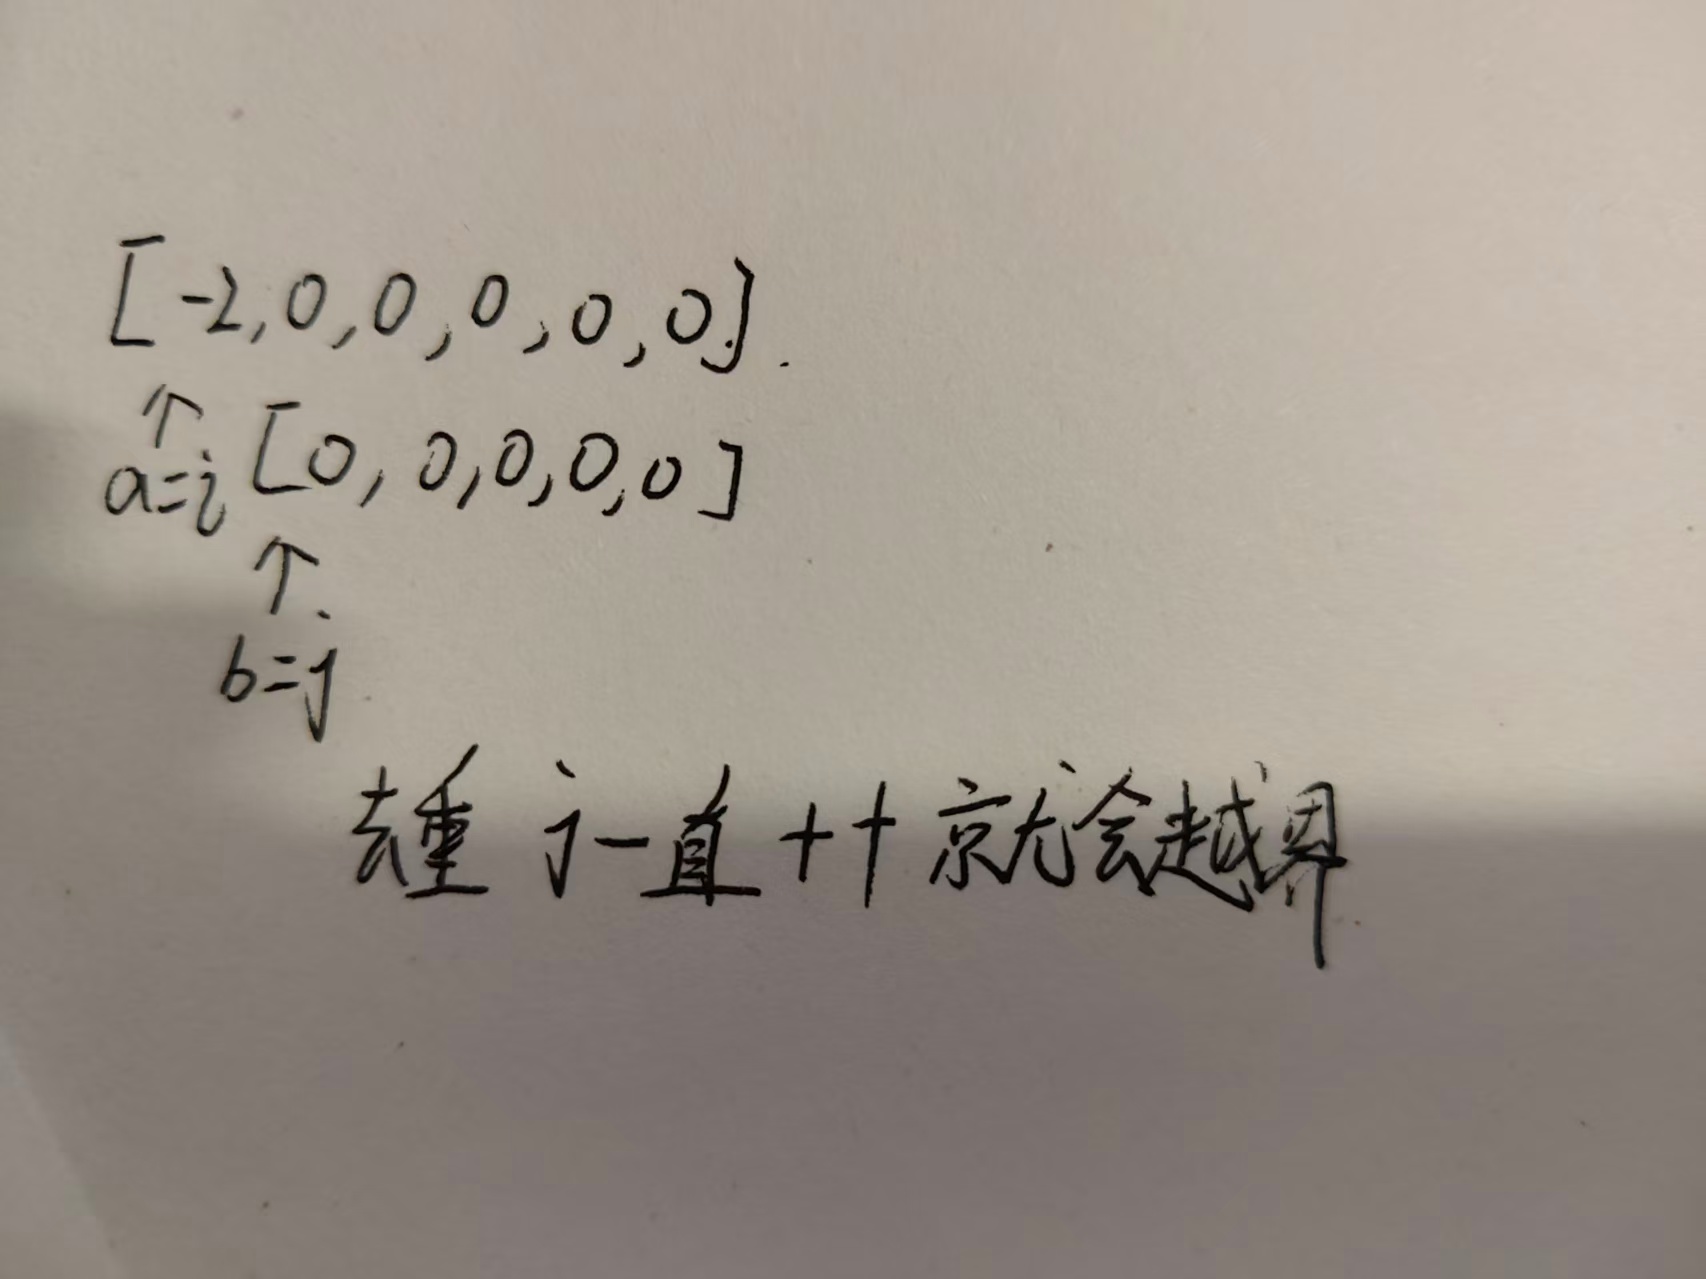 [-2,0,0,0,0,0].
↑
a=i [0,0,0,0,0]
↑
b=j
去重 j一直++就会越界